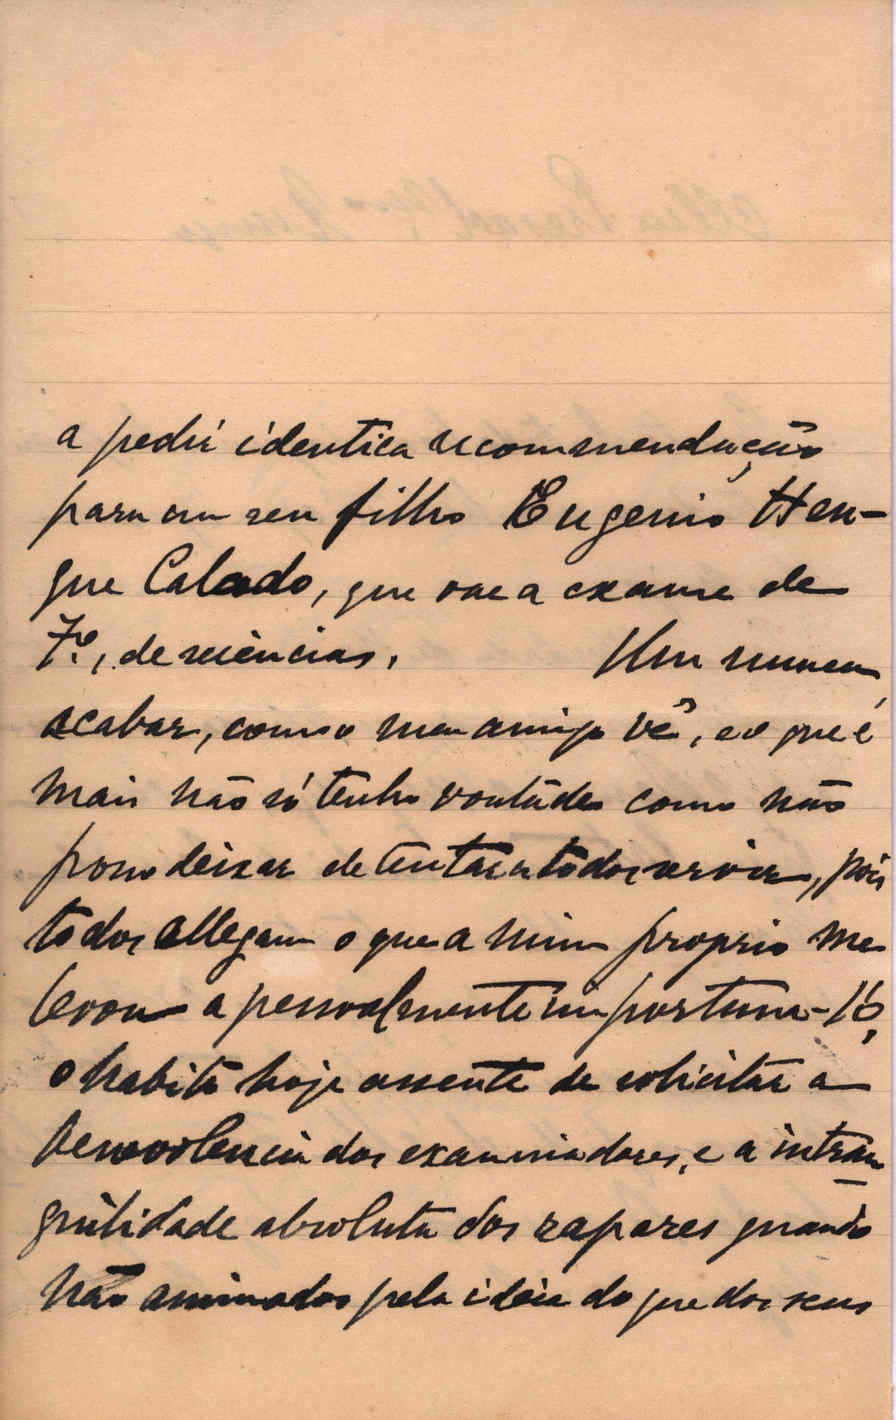 a pedir identica recommendação
para um seu filho Eugenio Hen-
que Calado, que vae a exame de
7º, de sciencias. Um nunca
acabar, como o meu amigo vê, e o que é
mais não só tenho vontade como não
posso deixar de tentar a todos servir, pois
todos allegam o que a mim proprio me
levou a pessoalmente importuna-lo,
o habito hoje assente de solicitar a
benevolencia dos examinadores, e a intran-
quilidade absoluta dos rapazes quando
não animados pela ideia do que dos seus